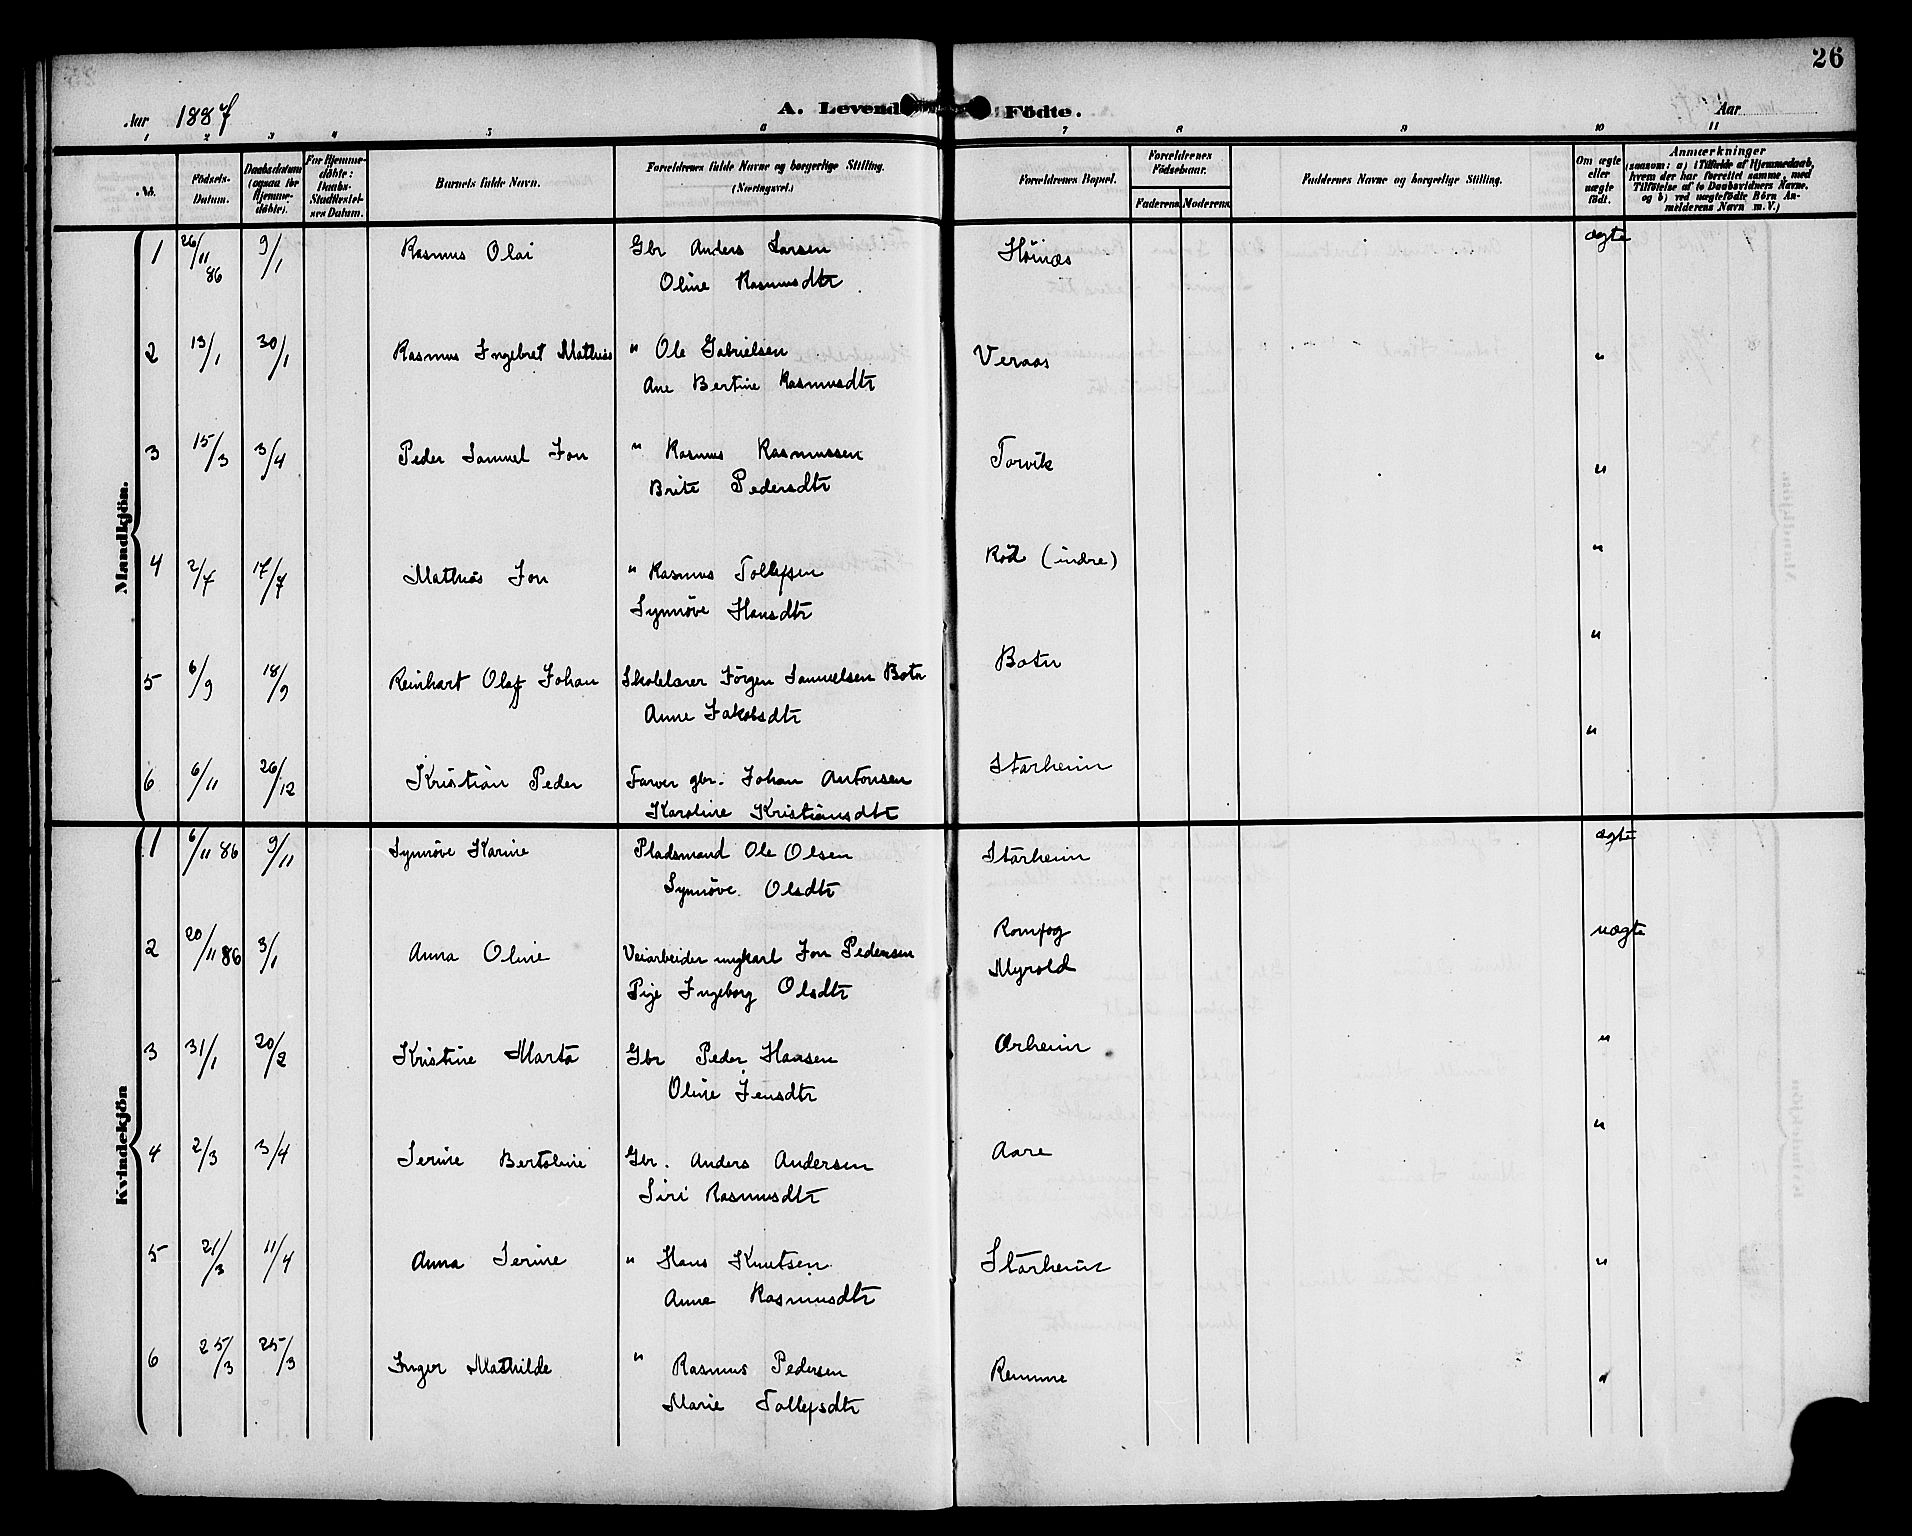 26
Aar 1887
A. Levende Födte.
Aar
1 2 3 4 5 6 7 8 9 10 11
No.
Födsels-Datum.
Daabsdatum (ogsaa for Hjemme-döbte).
For Hjemme-döbte: Daabs-Stadfæstel-ses Datum.
Barnets fulde Navn.
Forældrenes fulde Navne og borgerlige Stilling. (Næringsvei.)
Forældrenes Bopæl.
Forældrenes Födselsaar.
Faderens Moderens
Faddernes Navne og borgerlige Stilling.
Om ægte eller uægte födt.
Anmærkninger
(saasom: a) i Tilfælde af Hjemmedaab,
hvem der har forrettet samme, med
Tilföielse af to Daabsvidners Navne,
og b) ved uægtefödte Börn An-
melderens Navn m. V.)
Mandkjön.
1 26/11 86 9/1 Rasmus Olai Gbr Anders Larsen Höinæs ægte
Oline Rasmusdtr
2 13/1 30/1 Rasmus Ingebret Mathias " Ole Gabrielsen Veraas "
Ane Bertine Rasmusdtr
3 15/3 3/4 Peder Samuel Jon " Rasmus Rasmussen Torvik "
Brite Pedersdtr
4 2/7 17/7 Mathias Jon " Rasmus Tollefsen Röd (indre) "
Synnöve Hansdtr
5 6/9 18/9 Reinhart Olaf Johan Skolelærer Jörgen Samuelsen Botn Botn "
Anne Jakobsdtr
6 6/11 26/12 Kristian Peder Farver gbr. Johan Antonsen Starheim "
Karoline Kristiansdtr
Kvindekjön
1 6/11 86 9/11 Synnöve Karine Pladsmand Ole Olsen Starheim ægte
Synnöve Olsdtr
2 20/11 86 3/1 Anna Oline Veiarbeider ungkarl Jon Pedersen Romfog uægte
Pige Ingeborg Olsdtr Myrold
3 31/1 20/2 Kristine Marta Gbr Peder Hansen Aarheim "
Oline Jensdtr
4 2/3 3/4 Serine Bertoline Gbr. Anders Andersen Aare "
Siri Rasmusdtr
5 21/3 11/4 Anna Serine " Hans Knutsen Starheim "
Anne Rasmusdtr
6 25/3 25/3 Inger Mathilde " Rasmus Pedersen Remme "
Marie Tollefsdtr